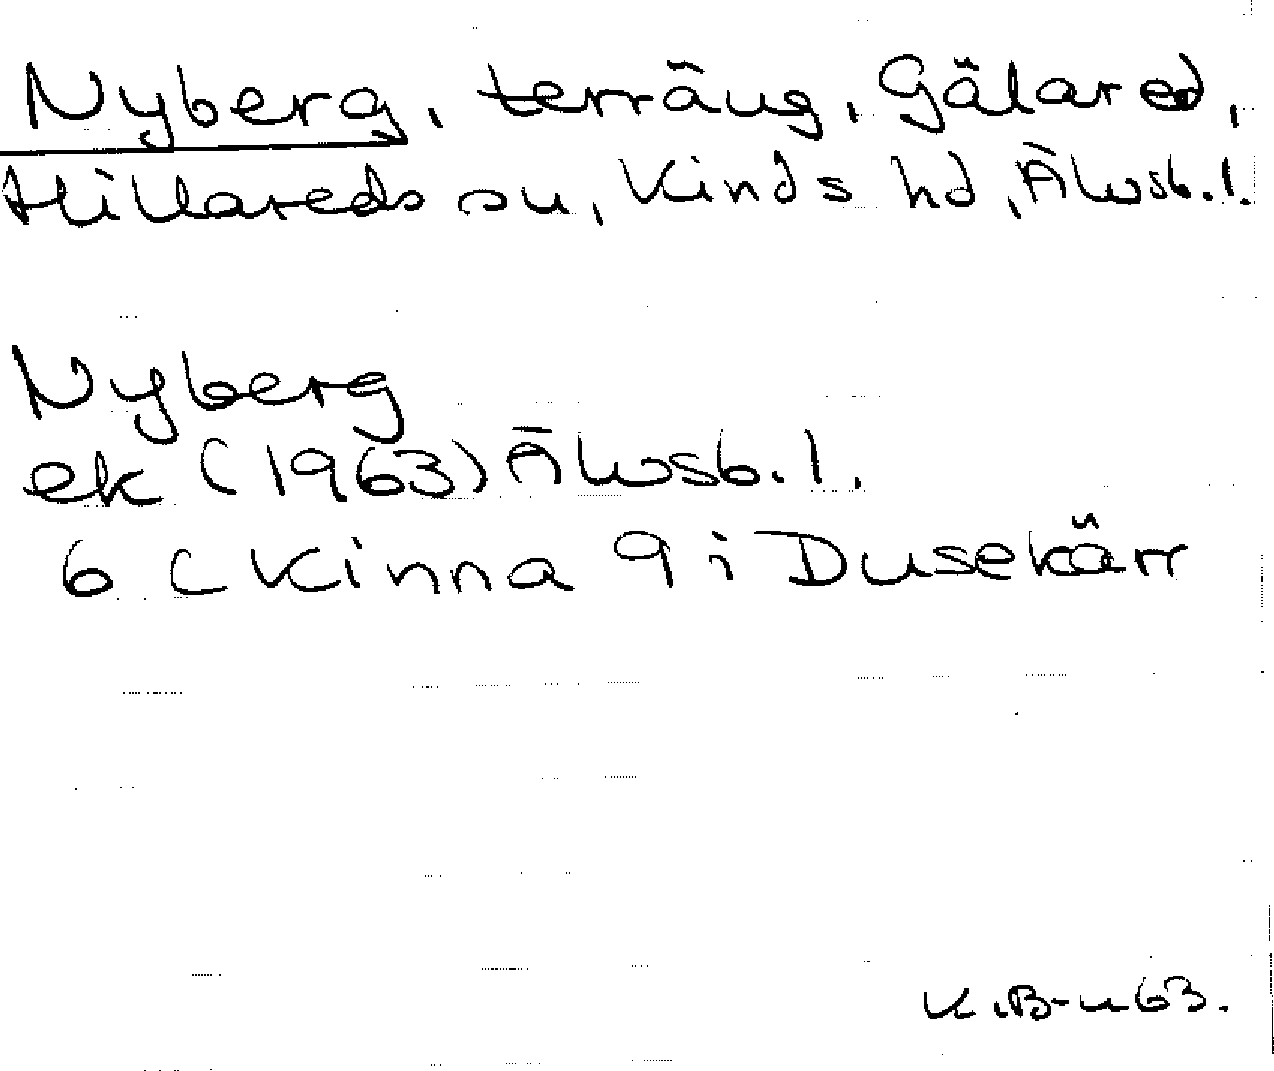 Nyberg, terräng, Gälared,
Hillareds sn, Kinds hd, Älvsb. l.
Nyberg
ek (1963) Älvsb. l.
6 C Kinna 9 i Dusekärr
K.B-n 63.